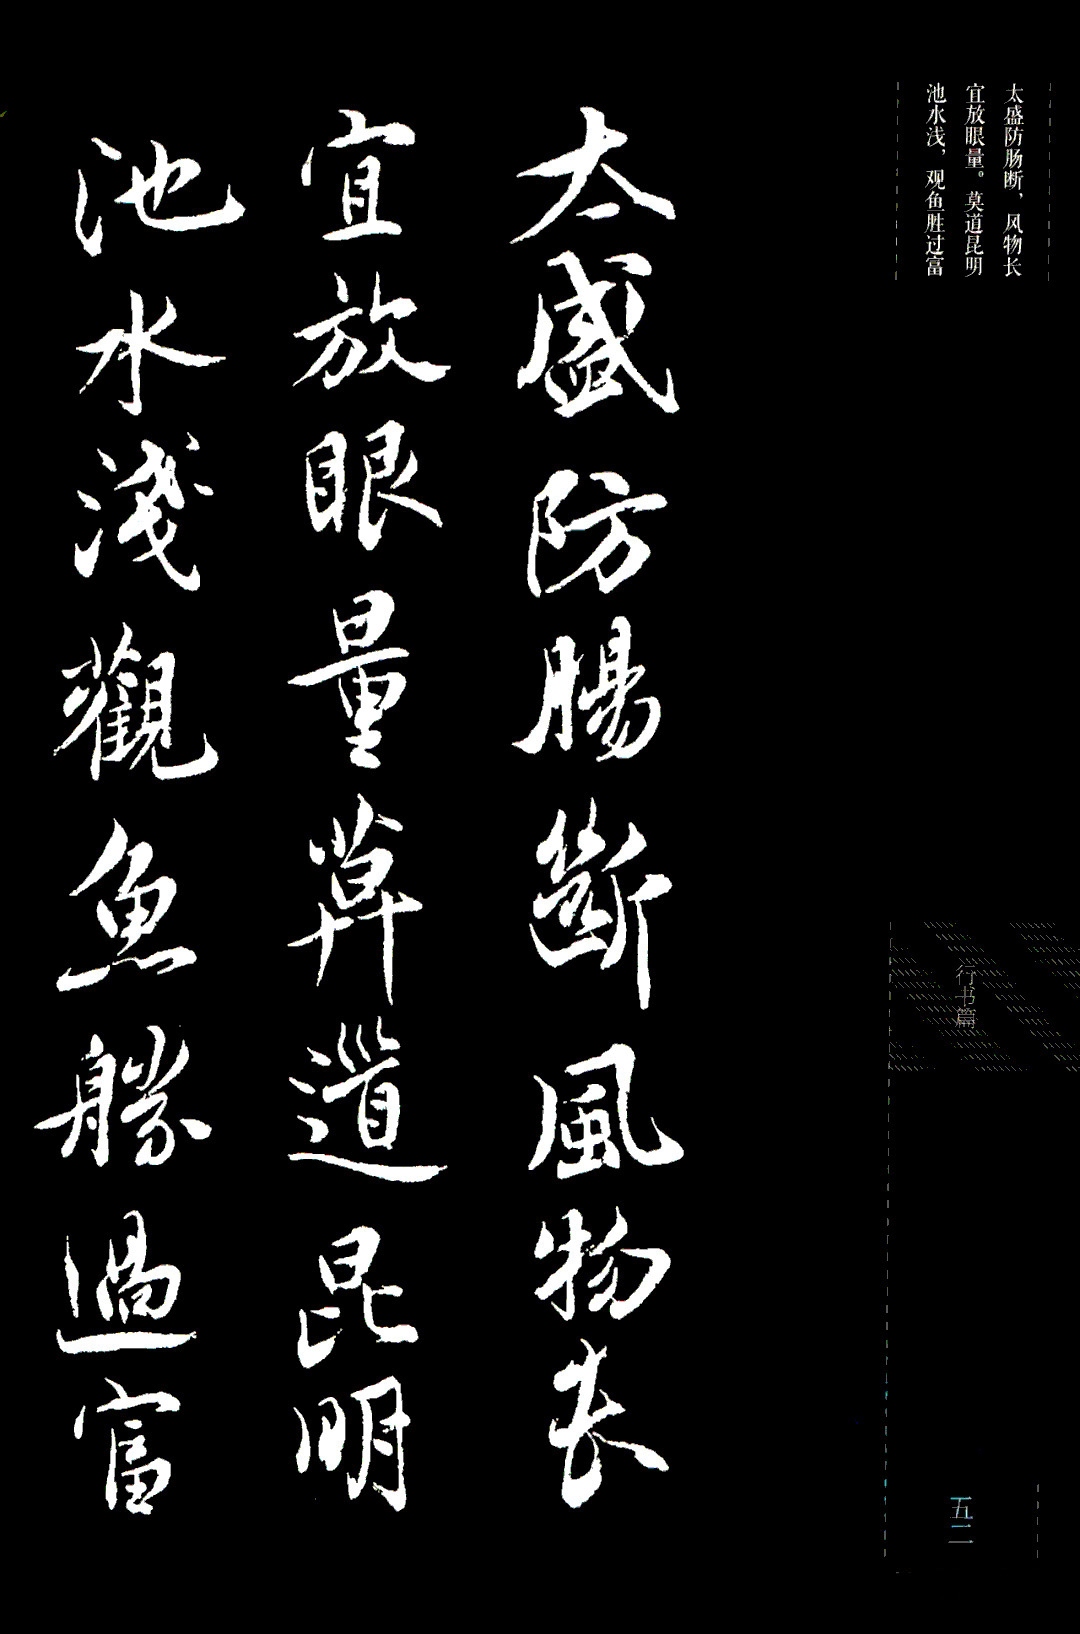 太盛防肠断，风物长
宜放眼量。莫道昆明
池水浅，观鱼胜过富
太盛防腸斷風物長
宜放眼量莫道昆明
池水淺觀魚勝過富
行书篇
五二